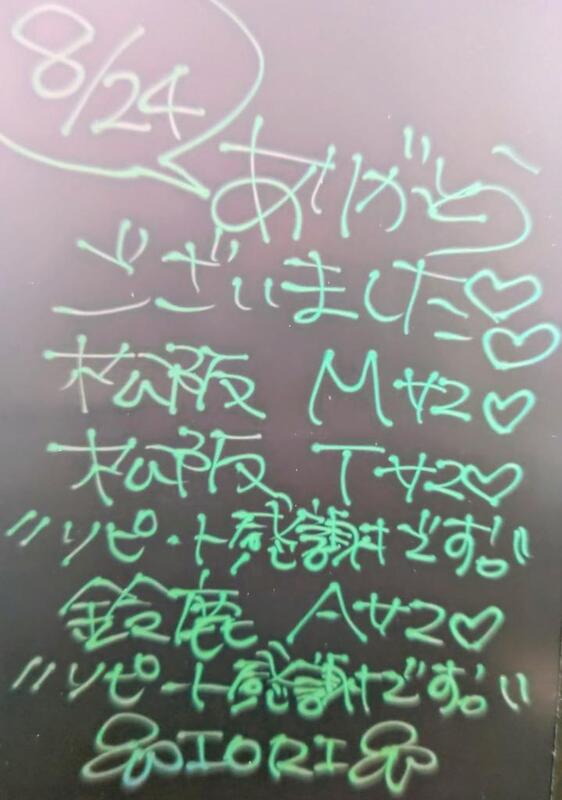 8/24
ありがとう
ございました♡♡
松阪 Mサン♡
松阪 Tサン♡
"リピート感謝です。"
鈴鹿 Aサン♡
"リピート感謝です。"
IORI